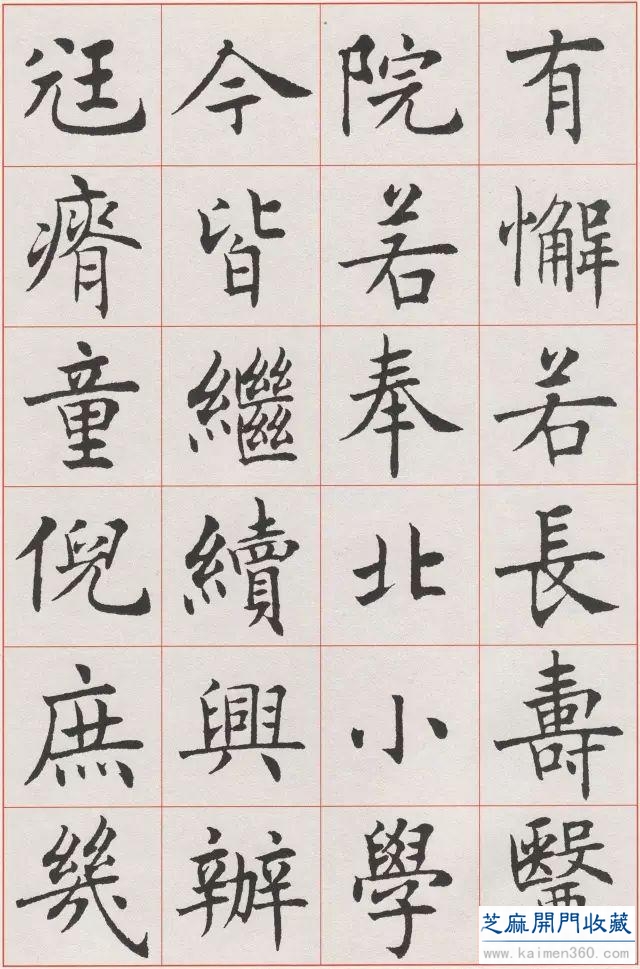 有懈若長壽醫
院若奉北小學
今皆繼續興辦
尪瘠童倪庶幾
芝麻開門收藏
www.kaimen360.com